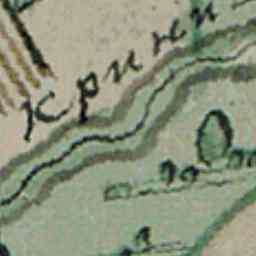 Крини